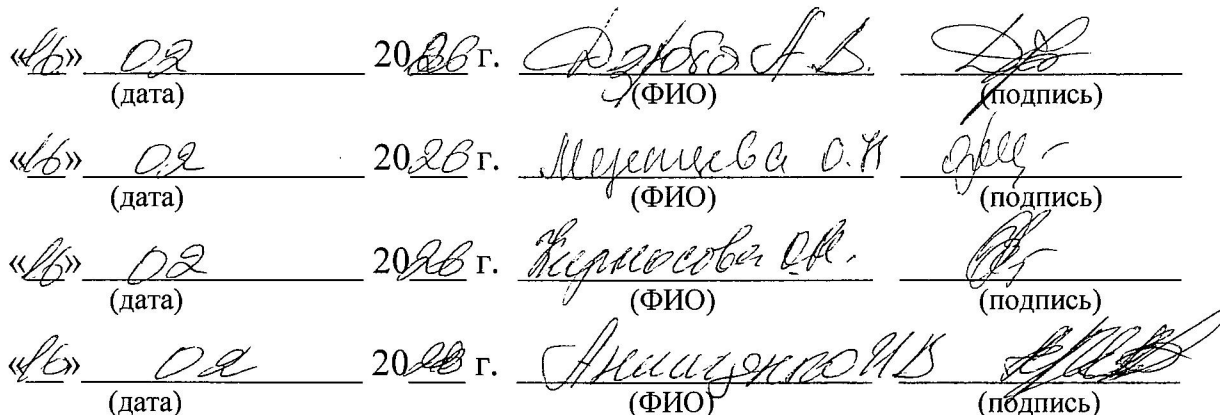 «16» 02 2026 г. Дзюба А.В.
(дата) (ФИО) (подпись)
«16» 02 2026 г. Мезенцева О.Н
(дата) (ФИО) (подпись)
«16» 02 2026 г. Жирносова О.М.
(дата) (ФИО) (подпись)
«16» 02 2026 г. Анищенко И В
(дата) (ФИО) (подпись)